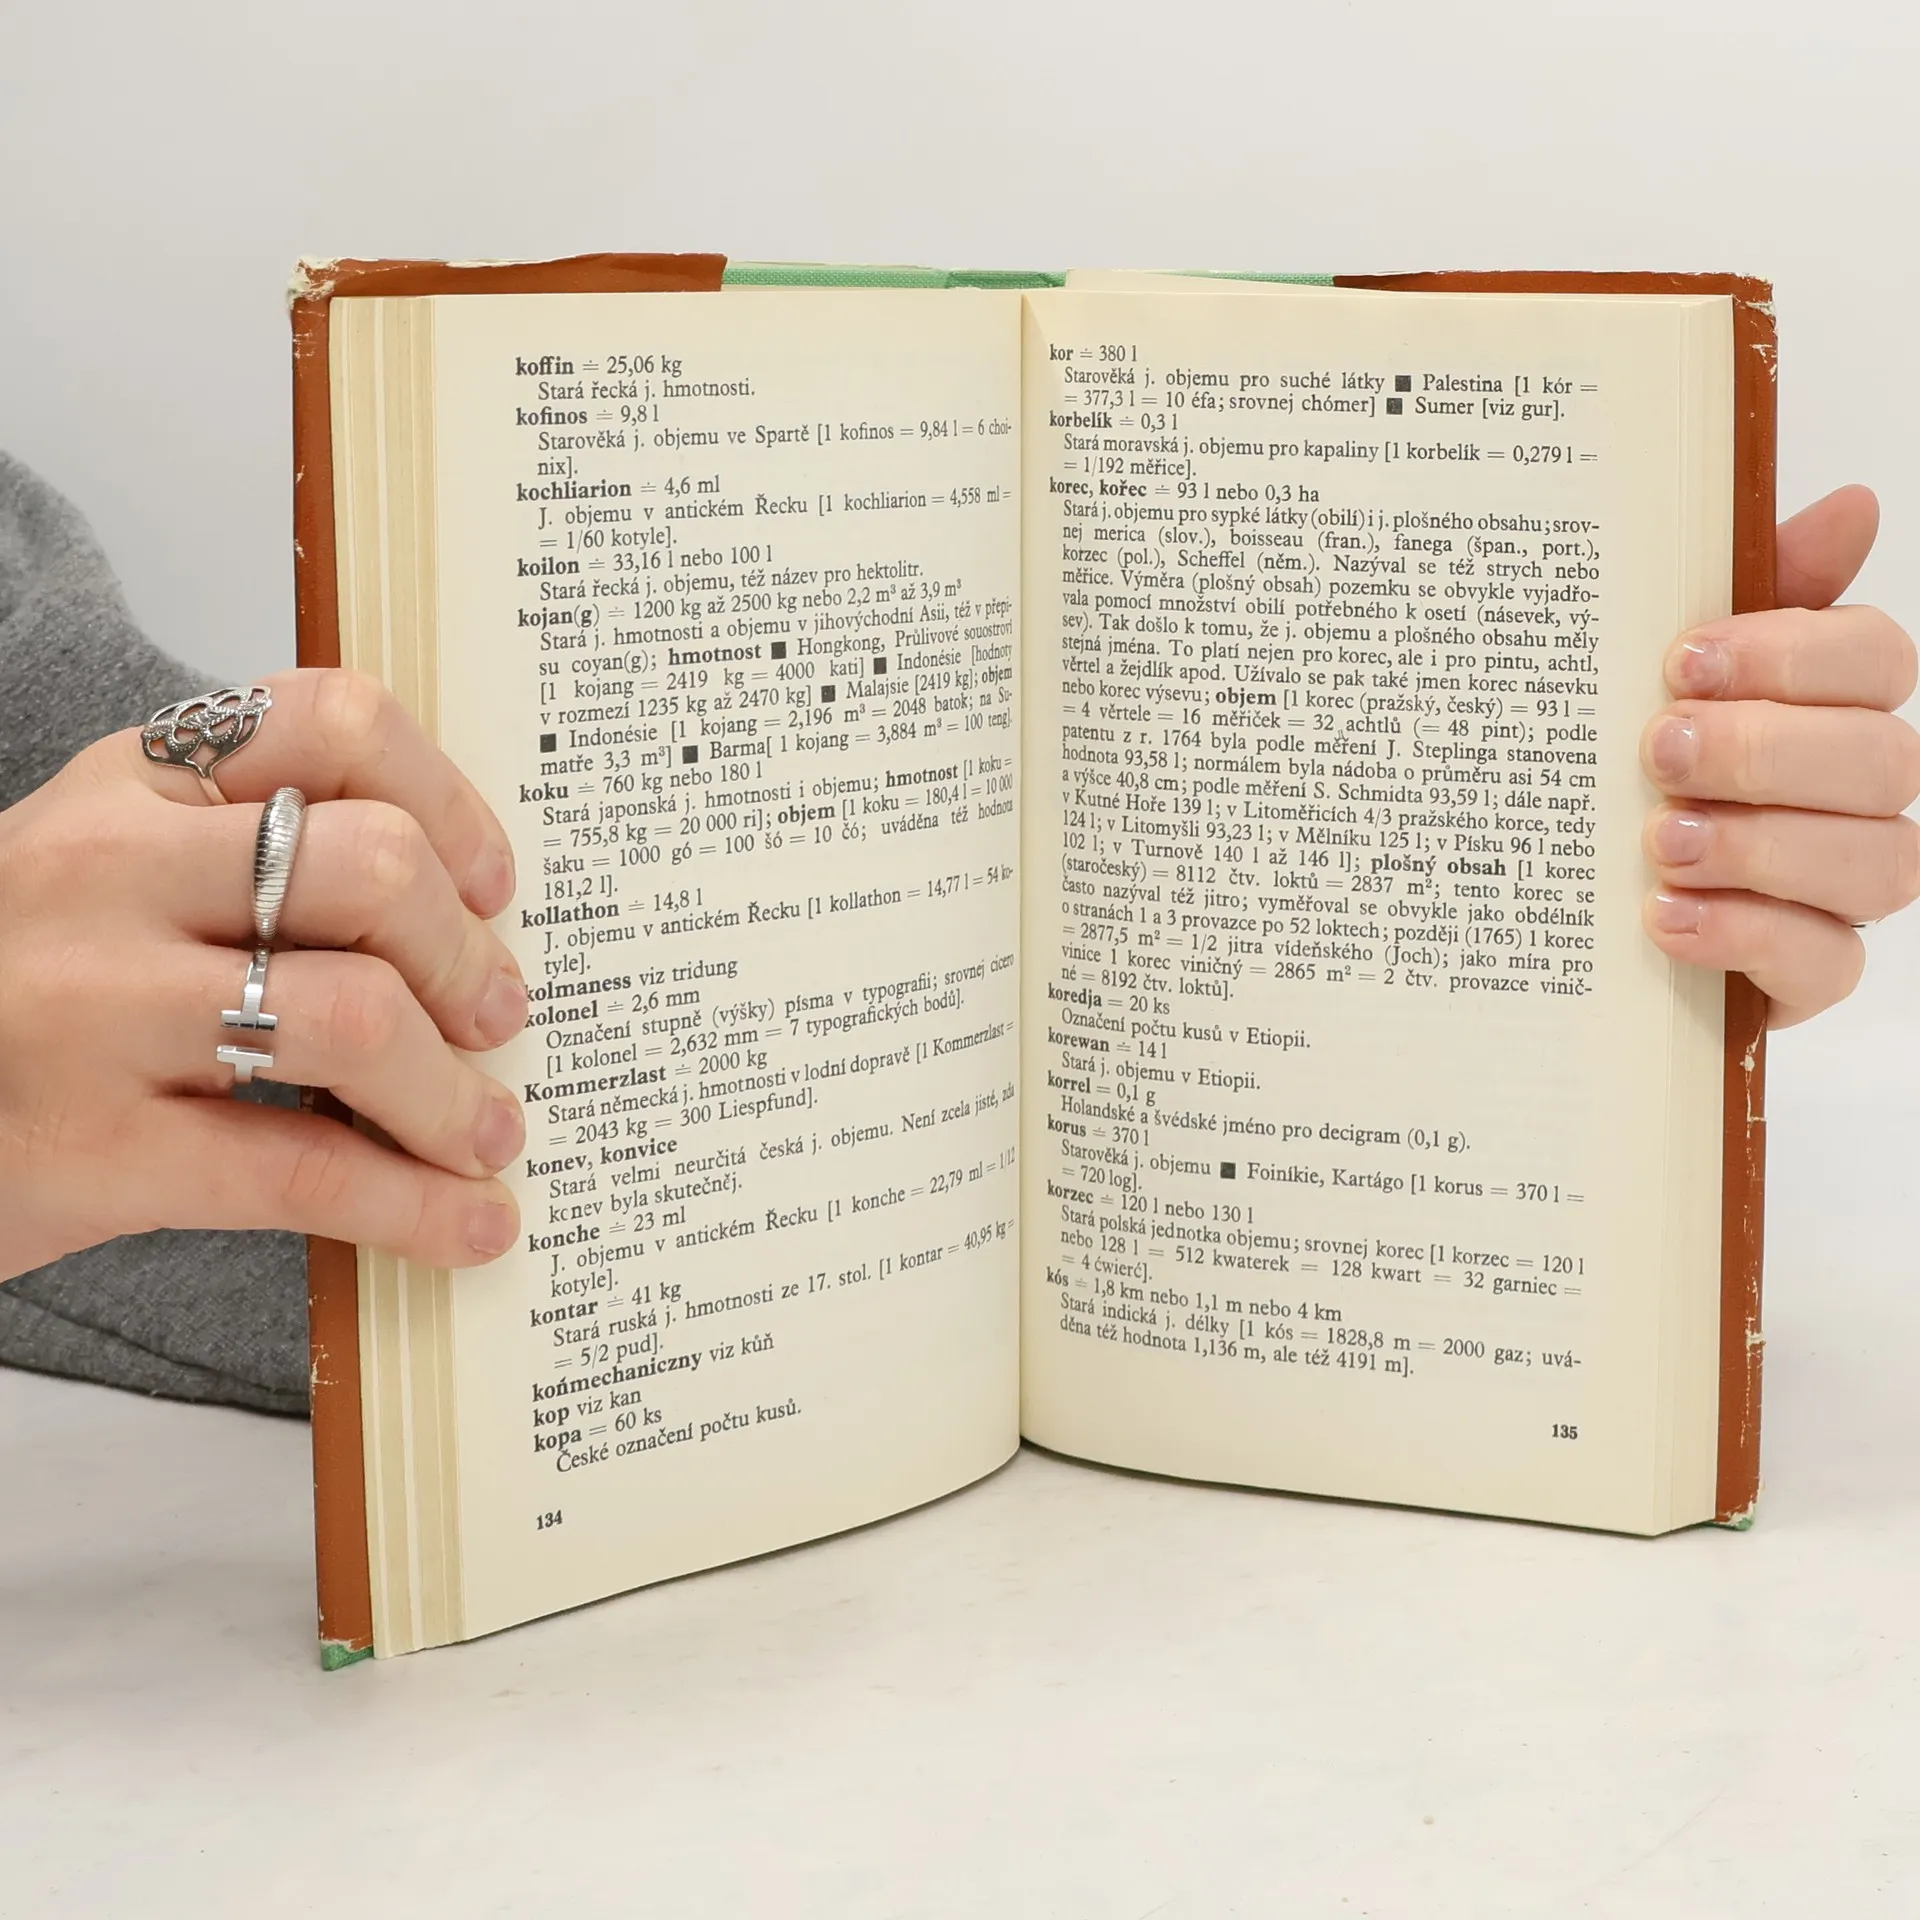 koffin ≐ 25,06 kg
Stará řecká j. hmotnosti.
kofinos ≐ 9,8 l
Starověká j. objemu ve Spartě [1 kofinos = 9,84 l = 6 choi-
nix].
kochliarion ≐ 4,6 ml
J. objemu v antickém Řecku [1 kochliarion = 4,558 ml =
= 1/60 kotyle].
koilon ≐ 33,16 l nebo 100 l
Stará řecká j. objemu, též název pro hektolitr.
kojan(g) ≐ 1200 kg až 2500 kg nebo 2,2 m³ až 3,9 m³
Stará j. hmotnosti a objemu v jihovýchodní Asii, též v přepi-
su coyan(g); hmotnost ■ Hongkong, Průlivové souostroví
[1 kojang = 2419 kg = 4000 kati] ■ Indonésie [hodnoty
v rozmezí 1235 kg až 2470 kg] ■ Malajsie [2419 kg]; objem
■ Indonésie [1 kojang = 2,196 m³ = 2048 batok; na Su-
matře 3,3 m³] ■ Barma[ 1 kojang = 3,884 m³ = 100 teng].
koku ≐ 760 kg nebo 180 l
Stará japonská j. hmotnosti i objemu; hmotnost [1 koku =
= 755,8 kg = 20 000 ri]; objem [1 koku = 180,4 l = 10 000
šaku = 1000 gó = 100 šó = 10 čó; uváděna též hodnota
181,2 l].
kollathon ≐ 14,8 l
J. objemu v antickém Řecku [1 kollathon = 14,77 l = 54 ko-
tyle].
kolmaness viz tridung
kolonel ≐ 2,6 mm
Označení stupně (výšky) písma v typografii; srovnej cicero
[1 kolonel = 2,632 mm = 7 typografických bodů].
Kommerzlast ≐ 2000 kg
Stará německá j. hmotnosti v lodní dopravě [1 Kommerzlast =
= 2043 kg = 300 Liespfund].
konev, konvice
Stará velmi neurčitá česká j. objemu. Není zcela jisté, zda
konev byla skutečněj.
konche ≐ 23 ml
J. objemu v antickém Řecku [1 konche = 22,79 ml = 1/12
kotyle].
kontar ≐ 41 kg
Stará ruská j. hmotnosti ze 17. stol. [1 kontar = 40,95 kg =
= 5/2 pud].
końmechaniczny viz kůň
kop viz kan
kopa = 60 ks
České označení počtu kusů.
134
kor ≐ 380 l
Starověká j. objemu pro suché látky ■ Palestina [1 kór =
= 377,3 l = 10 éfa; srovnej chómer] ■ Sumer [viz gur].
korbelík ≐ 0,3 l
Stará moravská j. objemu pro kapaliny [1 korbelík = 0,279 l =
= 1/192 měřice].
korec, kořec ≐ 93 l nebo 0,3 ha
Stará j. objemu pro sypké látky (obilí) i j. plošného obsahu; srov-
nej merica (slov.), boisseau (fran.), fanega (špan., port.),
korzec (pol.), Scheffel (něm.). Nazýval se též strych nebo
měřice. Výměra (plošný obsah) pozemku se obvykle vyjadřo-
vala pomocí množství obilí potřebného k osetí (násevek, vý-
sev). Tak došlo k tomu, že j. objemu a plošného obsahu měly
stejná jména. To platí nejen pro korec, ale i pro pintu, achtl,
věrtel a žejdlík apod. Užívalo se pak také jmen korec násevku
nebo korec výsevu; objem [1 korec (pražský, český) = 93 l =
= 4 věrtele = 16 měřiček = 32 achtlů (= 48 pint); podle
patentu z r. 1764 byla podle měření J. Steplinga stanovena
hodnota 93,58 l; normálem byla nádoba o průměru asi 54 cm
a výšce 40,8 cm; podle měření S. Schmidta 93,59 l; dále např.
v Kutné Hoře 139 l; v Litoměřicích 4/3 pražského korce, tedy
124 l; v Litomyšli 93,23 l; v Mělníku 125 l; v Písku 96 l nebo
102 l; v Turnově 140 l až 146 l]; plošný obsah [1 korec
(staročeský) = 8112 čtv. loktů = 2837 m²; tento korec se
často nazýval též jitro; vyměřoval se obvykle jako obdélník
o stranách 1 a 3 provazce po 52 loktech; později (1765) 1 korec
= 2877,5 m² = 1/2 jitra vídeňského (Joch); jako míra pro
vinice 1 korec viničný = 2865 m² = 2 čtv. provazce vinič-
né = 8192 čtv. loktů].
koredja = 20 ks
Označení počtu kusů v Etiopii.
korewan ≐ 14 l
Stará j. objemu v Etiopii.
korrel = 0,1 g
Holandské a švédské jméno pro decigram (0,1 g).
korus ≐ 370 l
Starověká j. objemu ■ Foiníkie, Kartágo [1 korus = 370 l =
= 720 log].
korzec ≐ 120 l nebo 130 l
Stará polská jednotka objemu; srovnej korec [1 korzec = 120 l
nebo 128 l = 512 kwaterek = 128 kwart = 32 garniec =
= 4 ćwierć].
kós ≐ 1,8 km nebo 1,1 m nebo 4 km
Stará indická j. délky [1 kós = 1828,8 m = 2000 gaz; uvá-
děna též hodnota 1,136 m, ale též 4191 m].
135